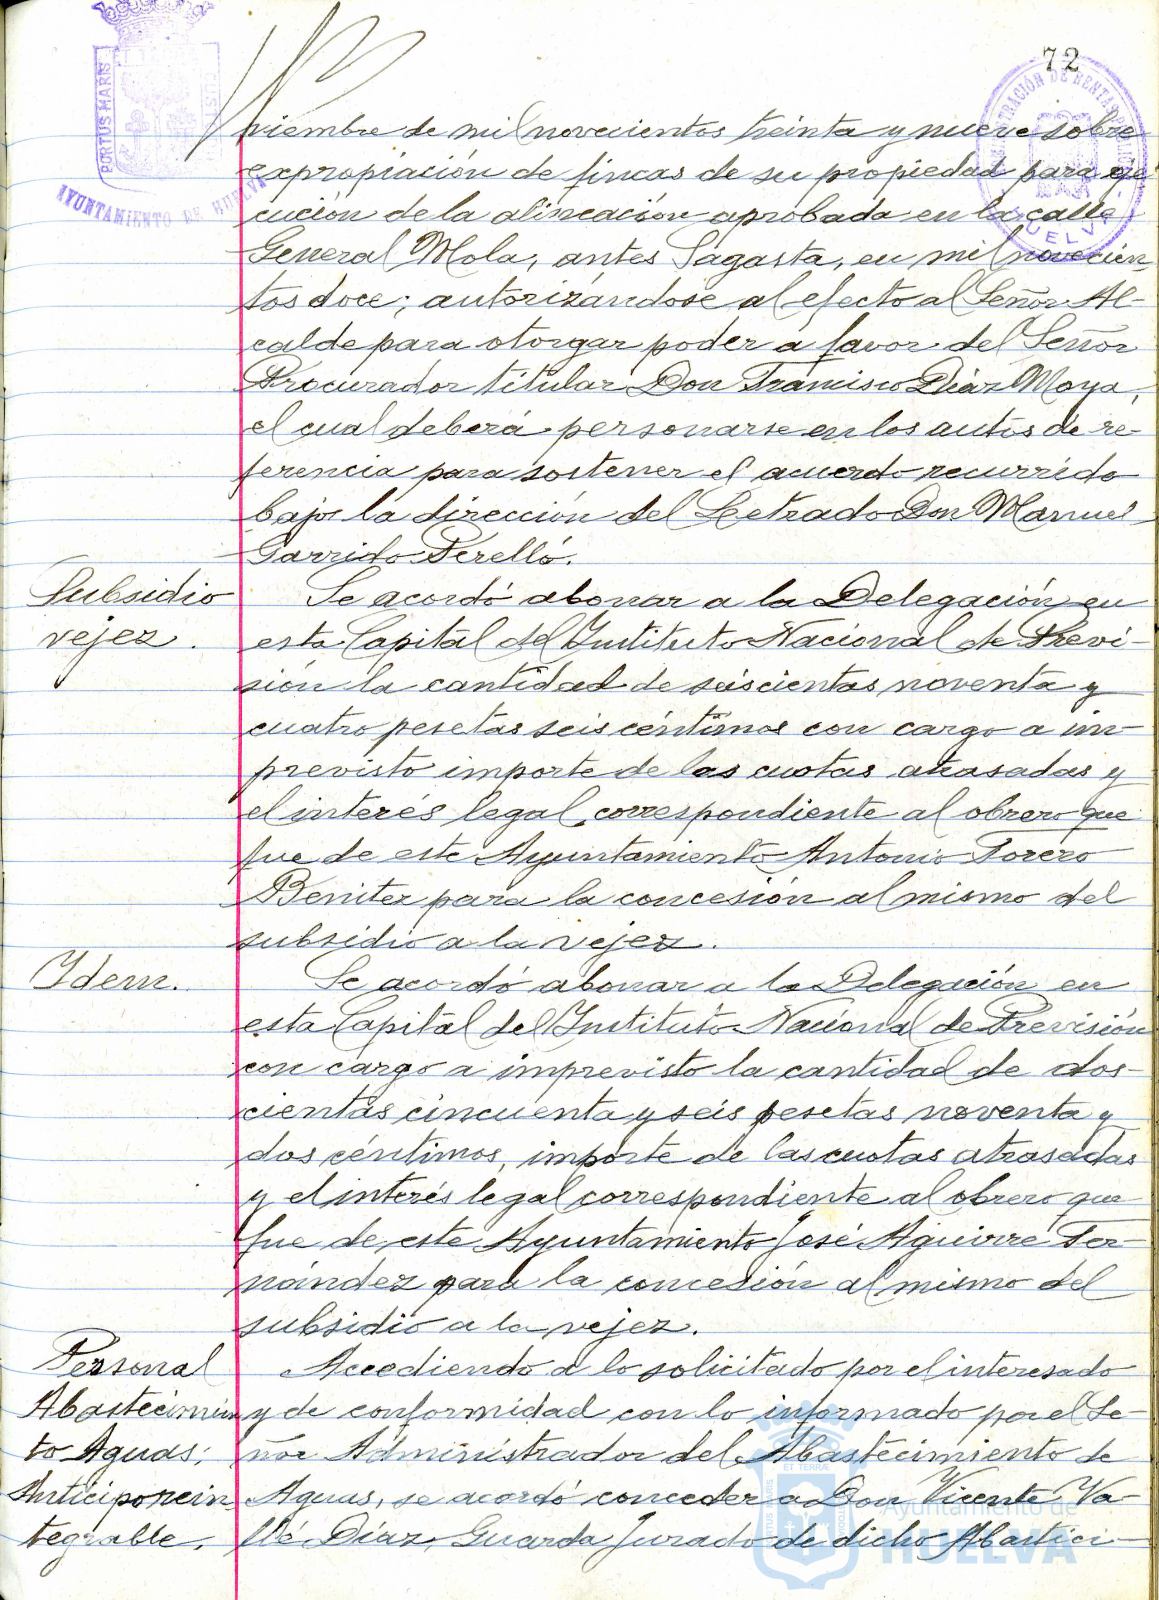 72
PORTUS MARIS
AYUNTAMIENTO DE HUELVA
viembre de mil novecientos treinta y nueve sobre
expropiación de fincas de su propiedad para eje
cución de la alineación aprobada en la calle
General Mola, antes Sagasta, en mil novecien-
tos doce; autorizándose al efecto al Señor Al-
calde para otorgar poder a favor del Señor
Procurador titular Don Francisco Díaz Moya,
el cual deberá personarse en los autos de re-
ferencia para sostener el acuerdo recurrido
bajo la dirección del Letrado Don Manuel
Garrido Perelló.
Subsidio
vejez.
Se acordó abonar a la Delegación en
esta Capital del Instituto Nacional de Previ-
sión la cantidad de seiscientas noventa y
cuatro pesetas seis céntimos con cargo a im-
previsto importe de las cuotas atrasadas y
el interés legal correspondiente al obrero que
fue de este Ayuntamiento Antonio Forero
Benitez para la concesión al mismo del
subsidio a la vejez.
Idem.
Se acordó abonar a la Delegación en
esta Capital del Instituto Nacional de Previsión
con cargo a imprevisto la cantidad de dos-
cientas cincuenta y seis pesetas noventa y
dos céntimos, importe de las cuotas atrasadas
y el interés legal correspondiente al obrero que
fue de este Ayuntamiento José Aguirre Fer-
nández para la concesión al mismo del
subsidio a la vejez.
Personal
Abastecimien
to Aguas;
Anticipo rein
tegrable.
Accediendo a lo solicitado por el interesado
y de conformidad con lo informado por el Se-
ñor Administrador del Abastecimiento de
Aguas, se acordó conceder a Don Vicente Va-
llé Díaz, Guarda Jurado de dicho Abasteci-
Ayuntamiento de
HUELVA